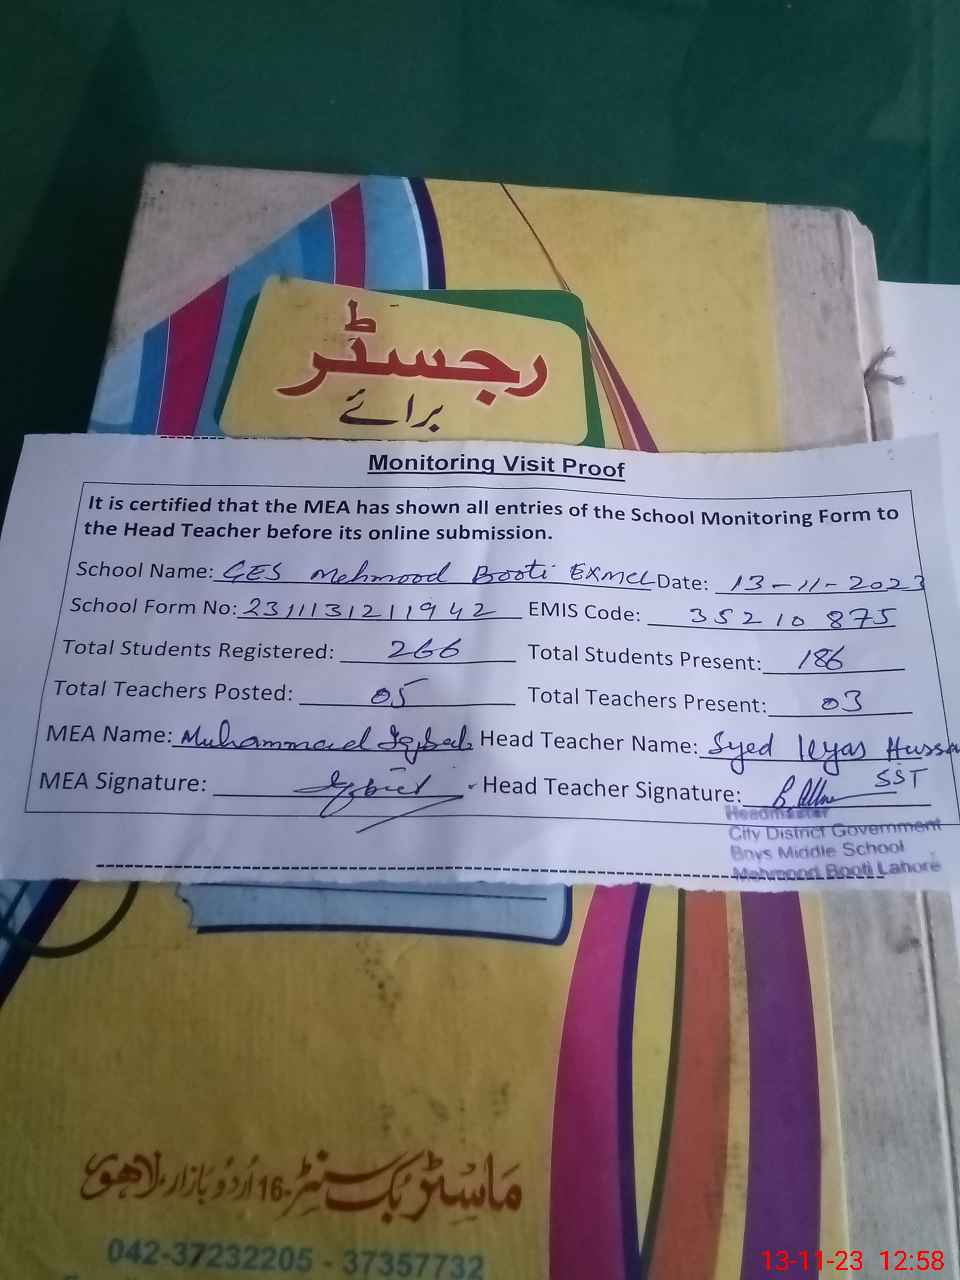 رجسٹر
برائے
Monitoring Visit Proof
It is certified that the MEA has shown all entries of the School Monitoring Form to
the Head Teacher before its online submission.
School Name: GES Mehmood Booti EXMCL Date: 13-11-2023
School Form No: 2311131211942 EMIS Code: 35210875
Total Students Registered: 266 Total Students Present: 186
Total Teachers Posted: 05 Total Teachers Present: 03
MEA Name: Muhammad Iqbal Head Teacher Name: Syed Ilyas Hussa
MEA Signature: Head Teacher Signature: SST
Headmaster
City District Government
Boys Middle School
Mehmood Booti Lahore
ماسٹر بک سنٹر 16-اُردو بازار، لاہور
042-37232205 - 37357732
13-11-23 12:58